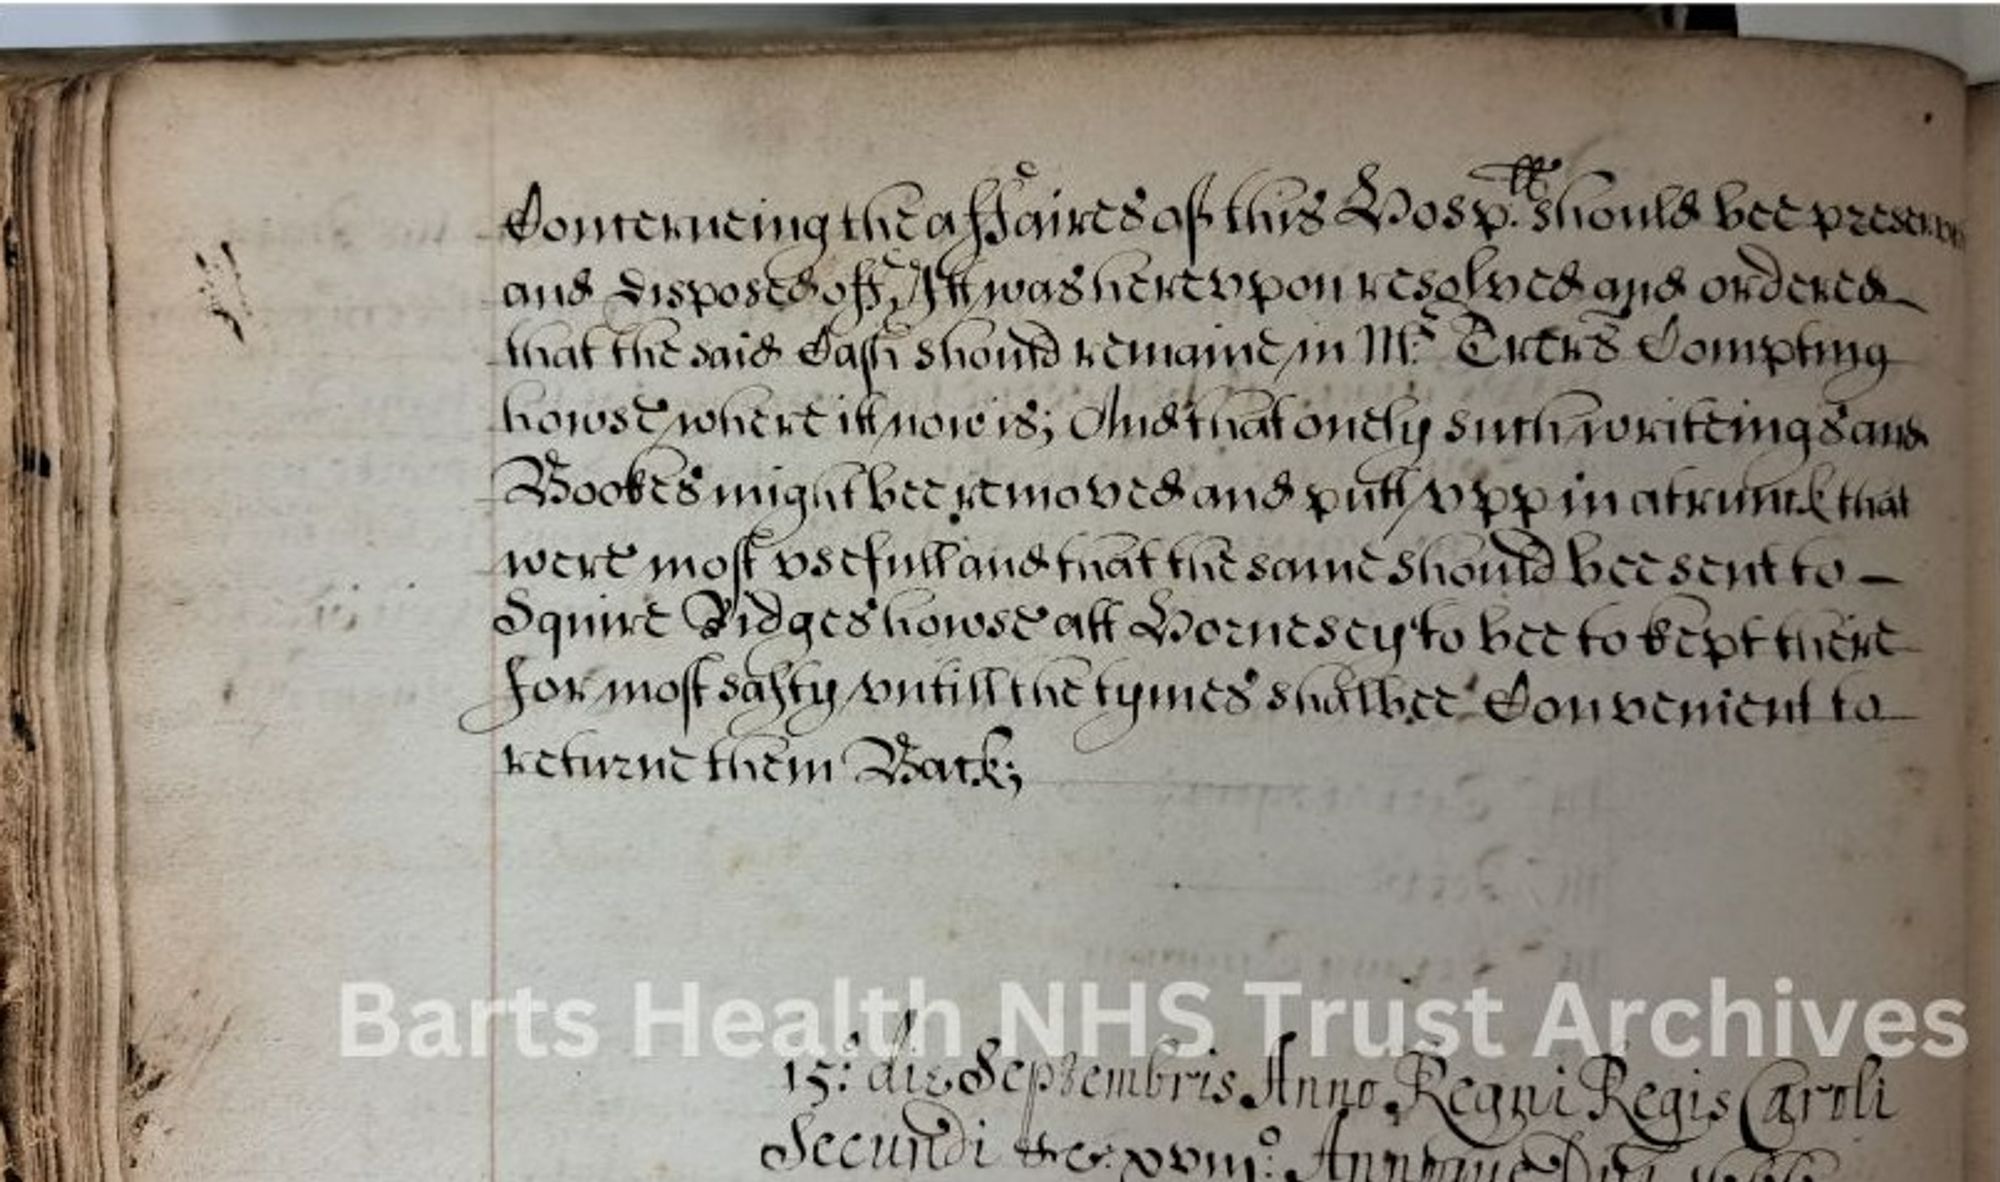 Concerneing the affaires off this Hosp.ll should bee preserved
and disposed off, Itt was herevpon resolved and ordered
that the said Cash should remaine in Mr. Trers Compting
howse where itt now is; And that onely such writeings and
Bookes might bee removed and putt vpp in a trunck that
were most vsefull and that the same should bee sent to
Squire Bidges howse att Hornesey to bee to kept there
for most safty vntill the tymes shalbee Convenient to
returne them Back;
Barts Health NHS Trust Archives
15o: die Septembris Anno Regni Regis Caroli
Secundi &c. xviijo: Annoque Dni 1666